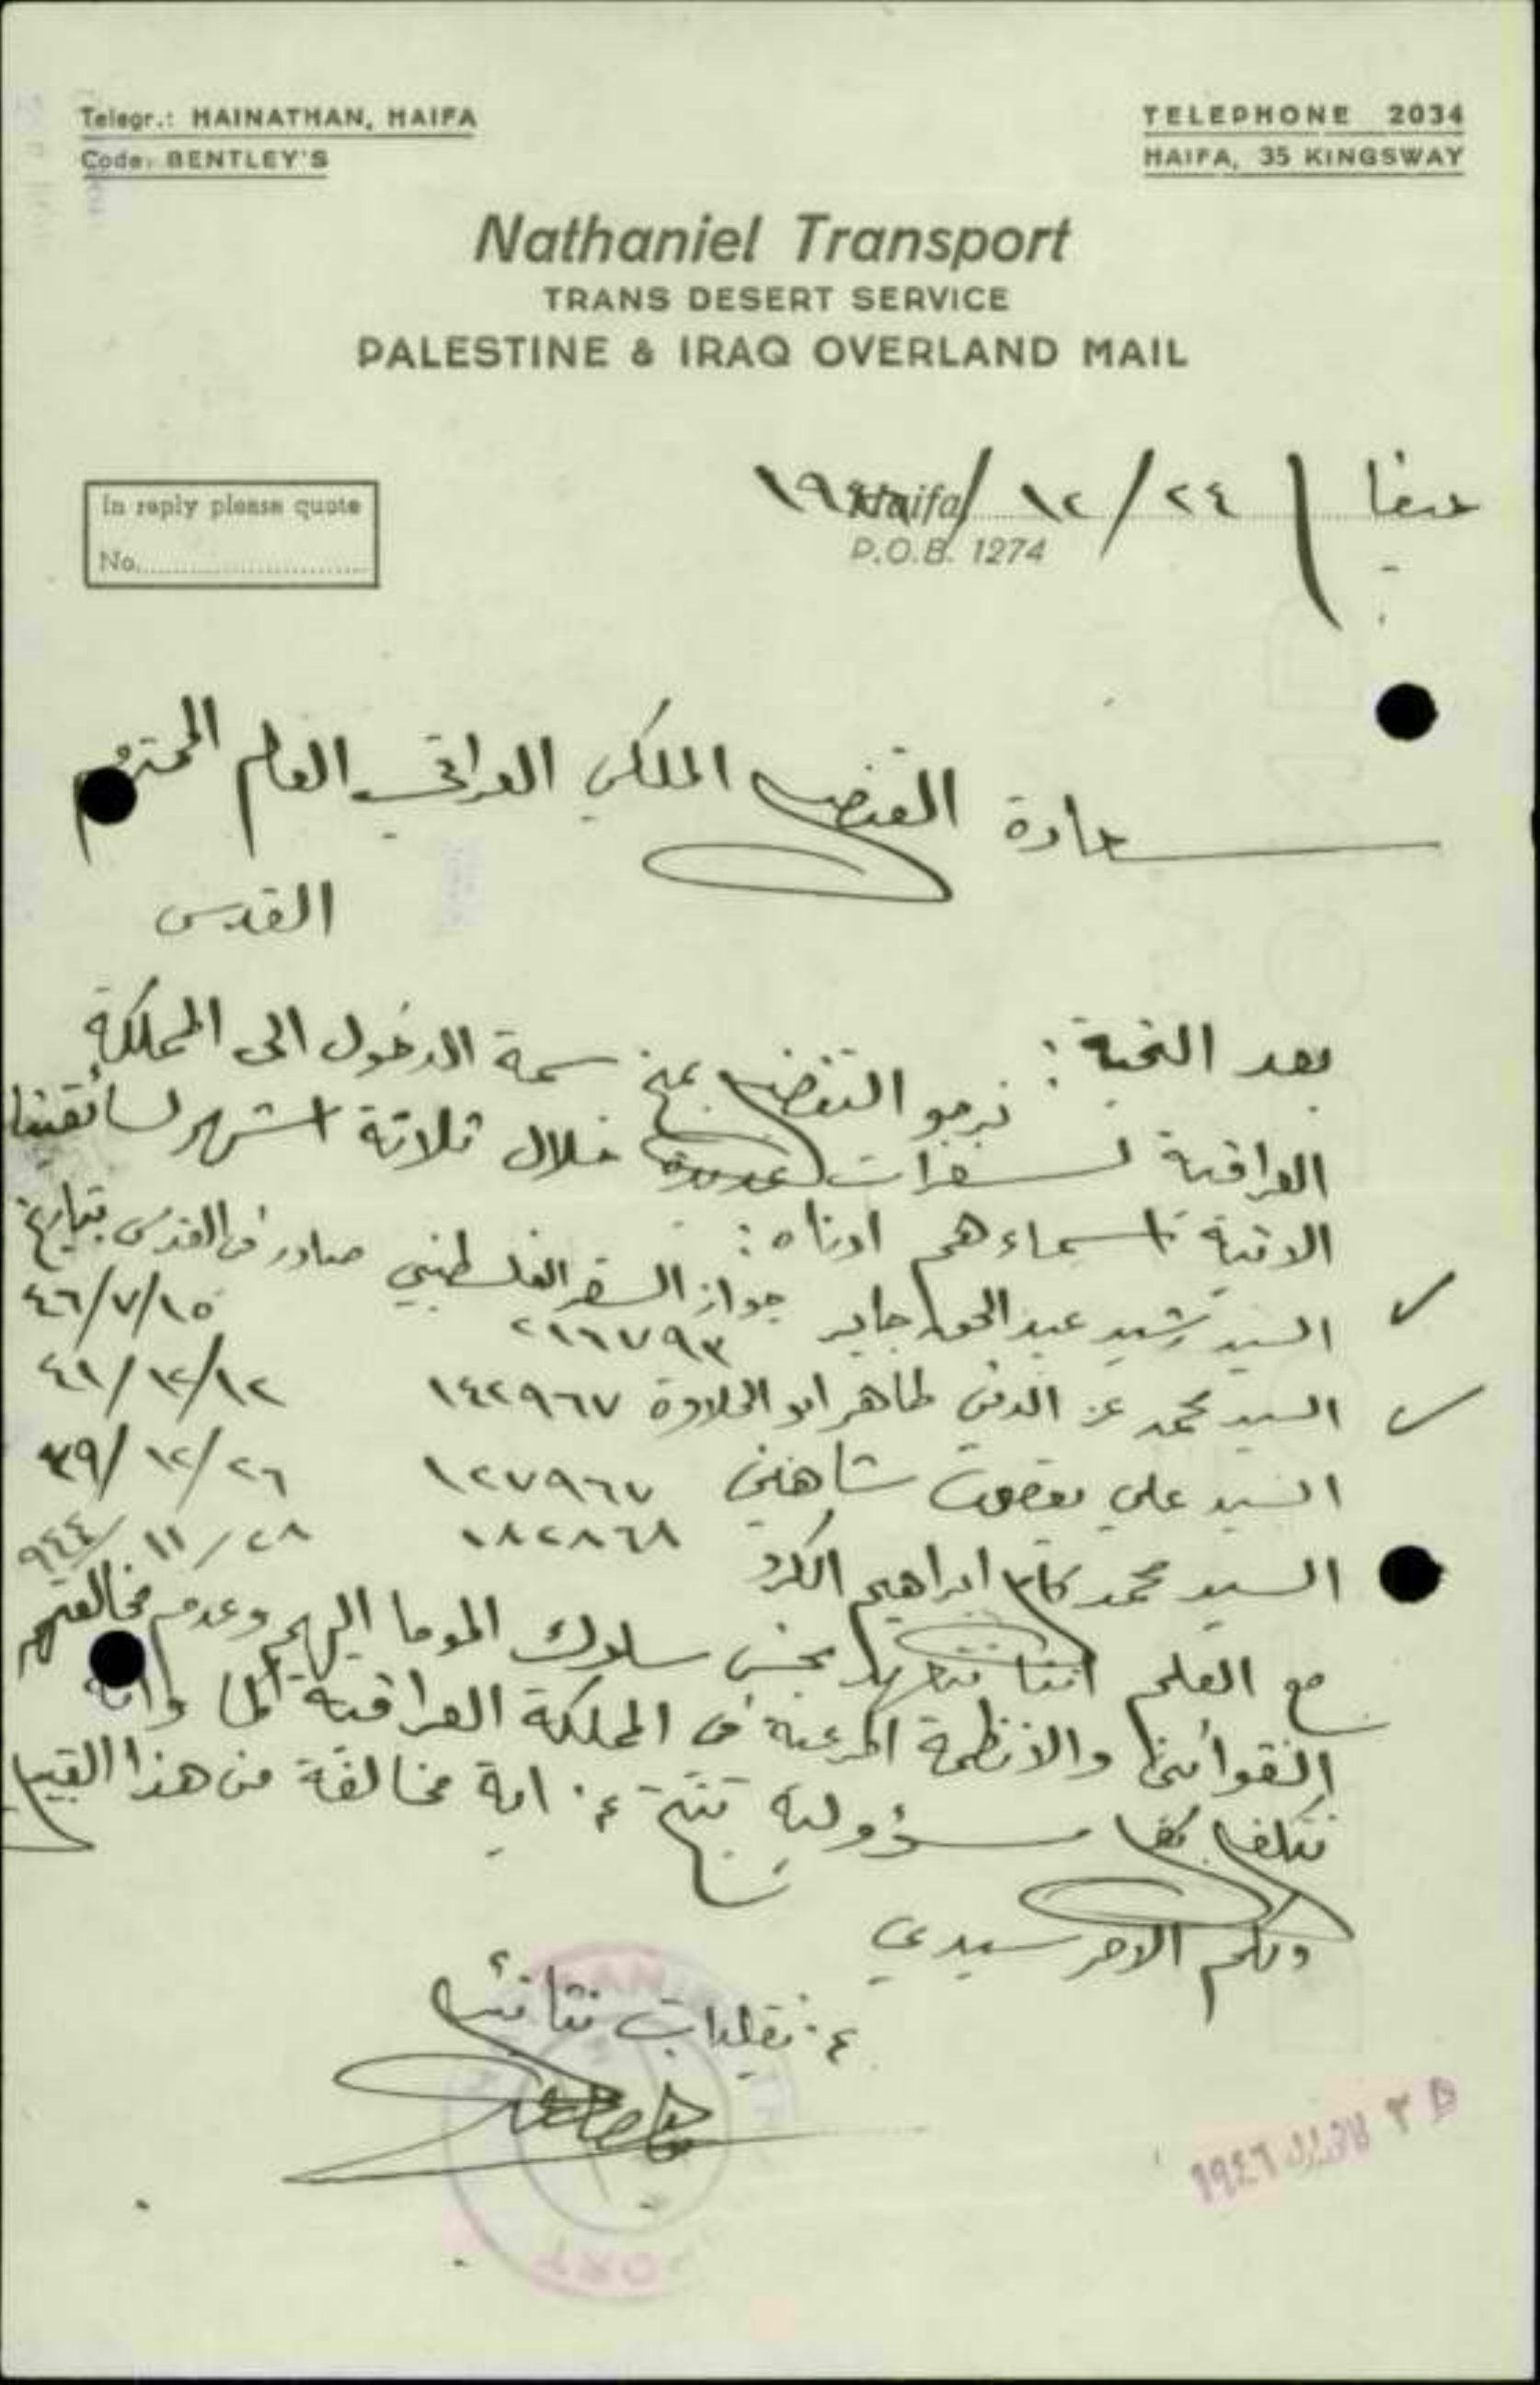 Telegr.: HAINATHAN, HAIFA
Code: BENTLEY'S
TELEPHONE 2034
HAIFA, 35 KINGSWAY
Nathaniel Transport
TRANS DESERT SERVICE
PALESTINE & IRAQ OVERLAND MAIL
In reply please quote
No.
Haifa
P.O.B. 1274
حيفا / ٢٤ / ١٢ /
سعادة القنصل الملكي العراقي العام المحترم
القدس
بعد التحية : نرجو التفضل بمنح سمة الدخول الى المملكة
العراقية لسفرات عديدة خلال ثلاثة اشهر لسائقينا
الاتية اسماءهم ادناه :
جواز السفر الفلسطيني صادر في القدس بتاريخ
السيد رشيد عبد الحق جابر ٢١٦٧٩٣ ٤٦/٧/١٥
السيد محمد عز الدين طاهر ابو الحلاوة ١٤٢٩٦٧ ٤١/١٢/١٢
السيد علي يعقوب شاهين ١٢٧٩٦٧ ٣٩/١٢/٢٦
السيد محمد كامل ابراهيم الكرد ١٨٢٨٦٨ ٢٨/١١/٩٤٤
مع العلم اننا نتعهد بحسن سلوك الموما اليهم وعدم مخالفتهم
القوانين والانظمة المرعية في المملكة العراقية
نتكفل بكل مسؤولية تنتج عن اية مخالفة من هذا القبيل
ولكم الامر سيدي
ع. نقليات نتانئيل